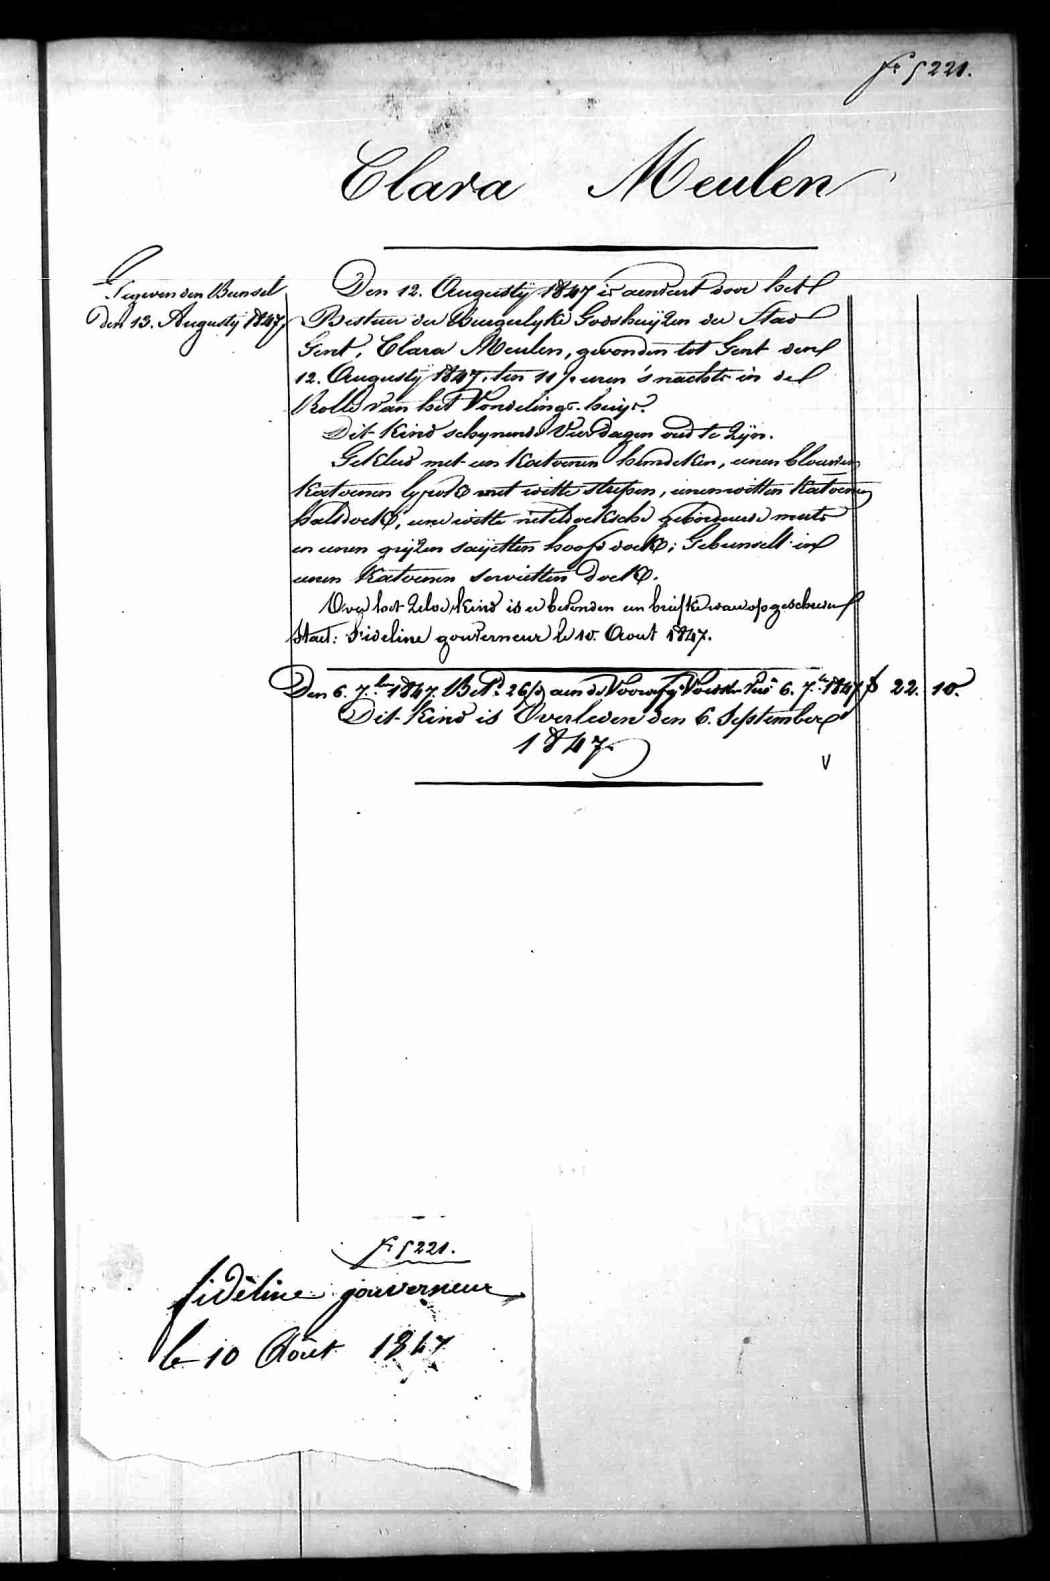 fº 5221.
Clara Meulen
Gegeven den Bunsel
den 13. Augusty 1847,
Den 12. Augusty 1847 is aenveert door het
Bestuer der Burgerlyke Godshuijzen der Stad
Gent, Clara Meulen, gevonden tot Gent den
12. Augusty 1847, ten 11 uren 's nachts in de
Rolle van het Vondelings-huijs.
Dit Kind schynende Vier dagen oud te Zijn.
Gekleed met een Katoenen hemdeken, eenen blauwen
Katoenen lyfrok met witte strepen, eenen witten Katoenen
halsdoek, eene witte neteldoeksche geborduerde muts
en eenen grijzen saijetten hoofd doek; Gebunselt in
eenen Katoenen servietten doek.
Op het Zelve Kind is er bevonden een briefke waer op geschreven
staet: Fideline gouverneur le 10 Aout 1847.
Den 6. 7.bre 1847. Betd. 26 aen de 6. 7.bre 1847 f 22. 10.
Dit Kind is Overleden den 6. September
1847.
V
fº 5221.
fidéline gouverneur
le 10 Août 1847